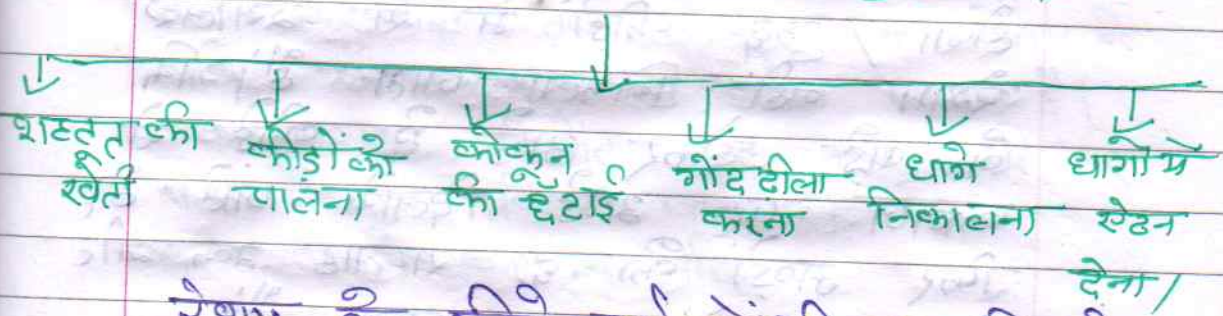 शहतूत की खेती
कीड़ों को पालना
कोकून की छँटाई
गोंद ढीला करना
धागे निकालना
धागों में ऐठन देना/